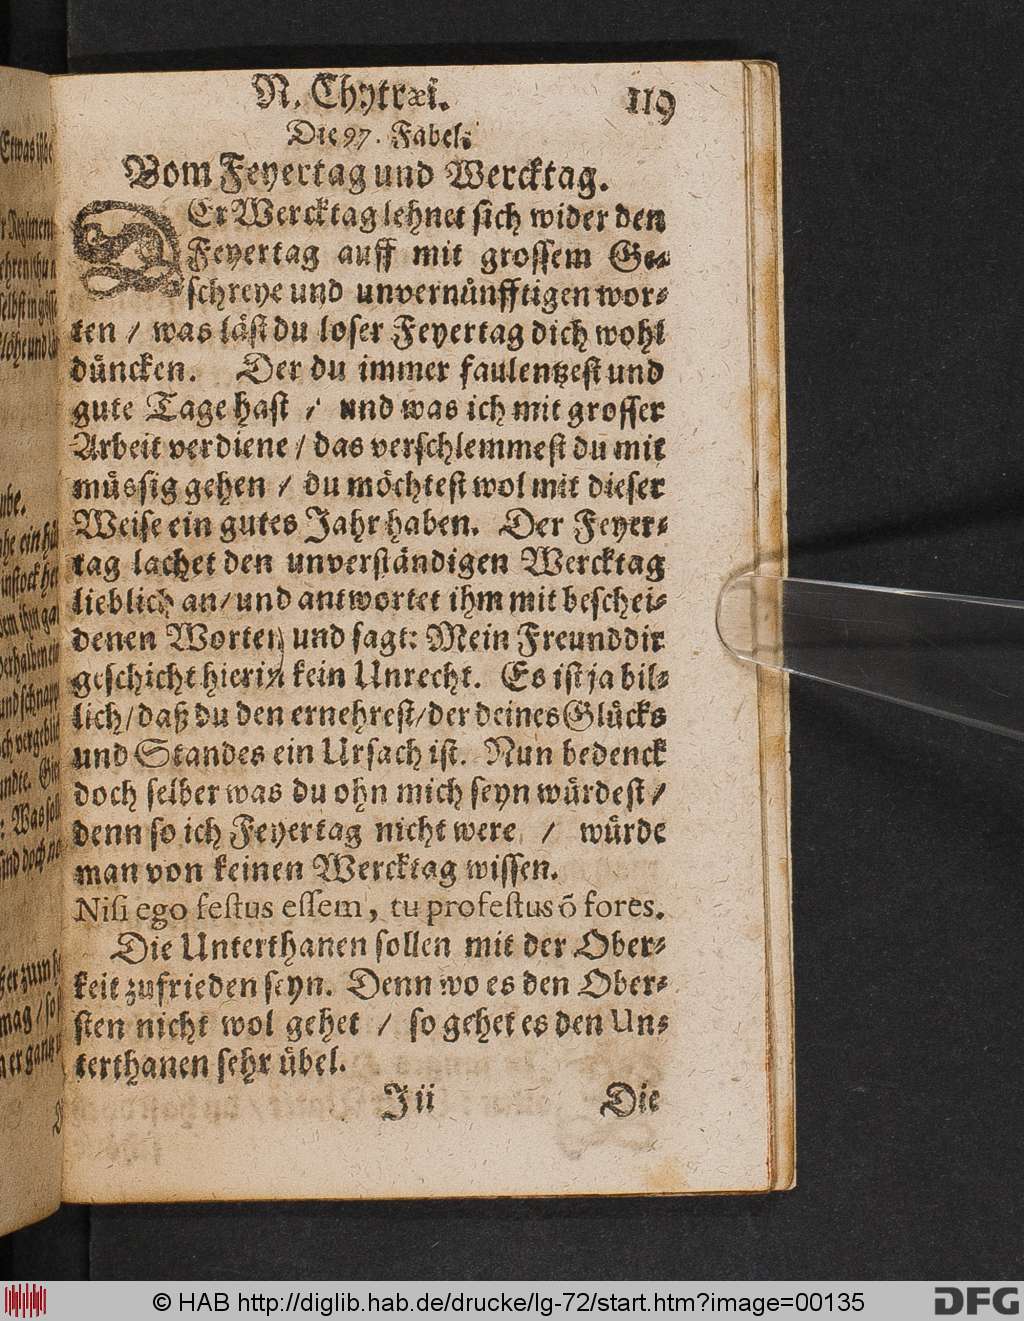 N. Chytræi.
119
Die 97. Fabel.
Vom Feyertag und Wercktag.
DEr Wercktag lehnet sich wider den
Feyertag auff mit grossem Ge-
schreye und unvernünfftigen wor-
ten / was läst du loser Feyertag dich wohl
düncken. Der du immer faulentzest und
gute Tage hast / und was ich mit grosser
Arbeit verdiene / das verschlemmest du mit
müssig gehen / du möchtest wol mit dieser
Weise ein gutes Jahr haben. Der Feyer-
tag lachet den unverständigen Wercktag
lieblich an / und antwortet ihm mit beschei-
denen Worten und sagt: Mein Freund dir
geschicht hierin kein Unrecht. Es ist ja bil-
lich / daß du den ernehrest / der deines Glücks
und Standes ein Ursach ist. Nun bedenck
doch selber was du ohn mich seyn würdest /
denn so ich Feyertag nicht were / würde
man von keinen Wercktag wissen.
Nisi ego festus essem, tu profestus õ fores.
Die Unterthanen sollen mit der Ober-
keit zufrieden seyn. Denn wo es den Ober-
sten nicht wol gehet / so gehet es den Un-
terthanen sehr übel.
Iii
Die
© HAB http://diglib.hab.de/drucke/lg-72/start.htm?image=00135
DFG